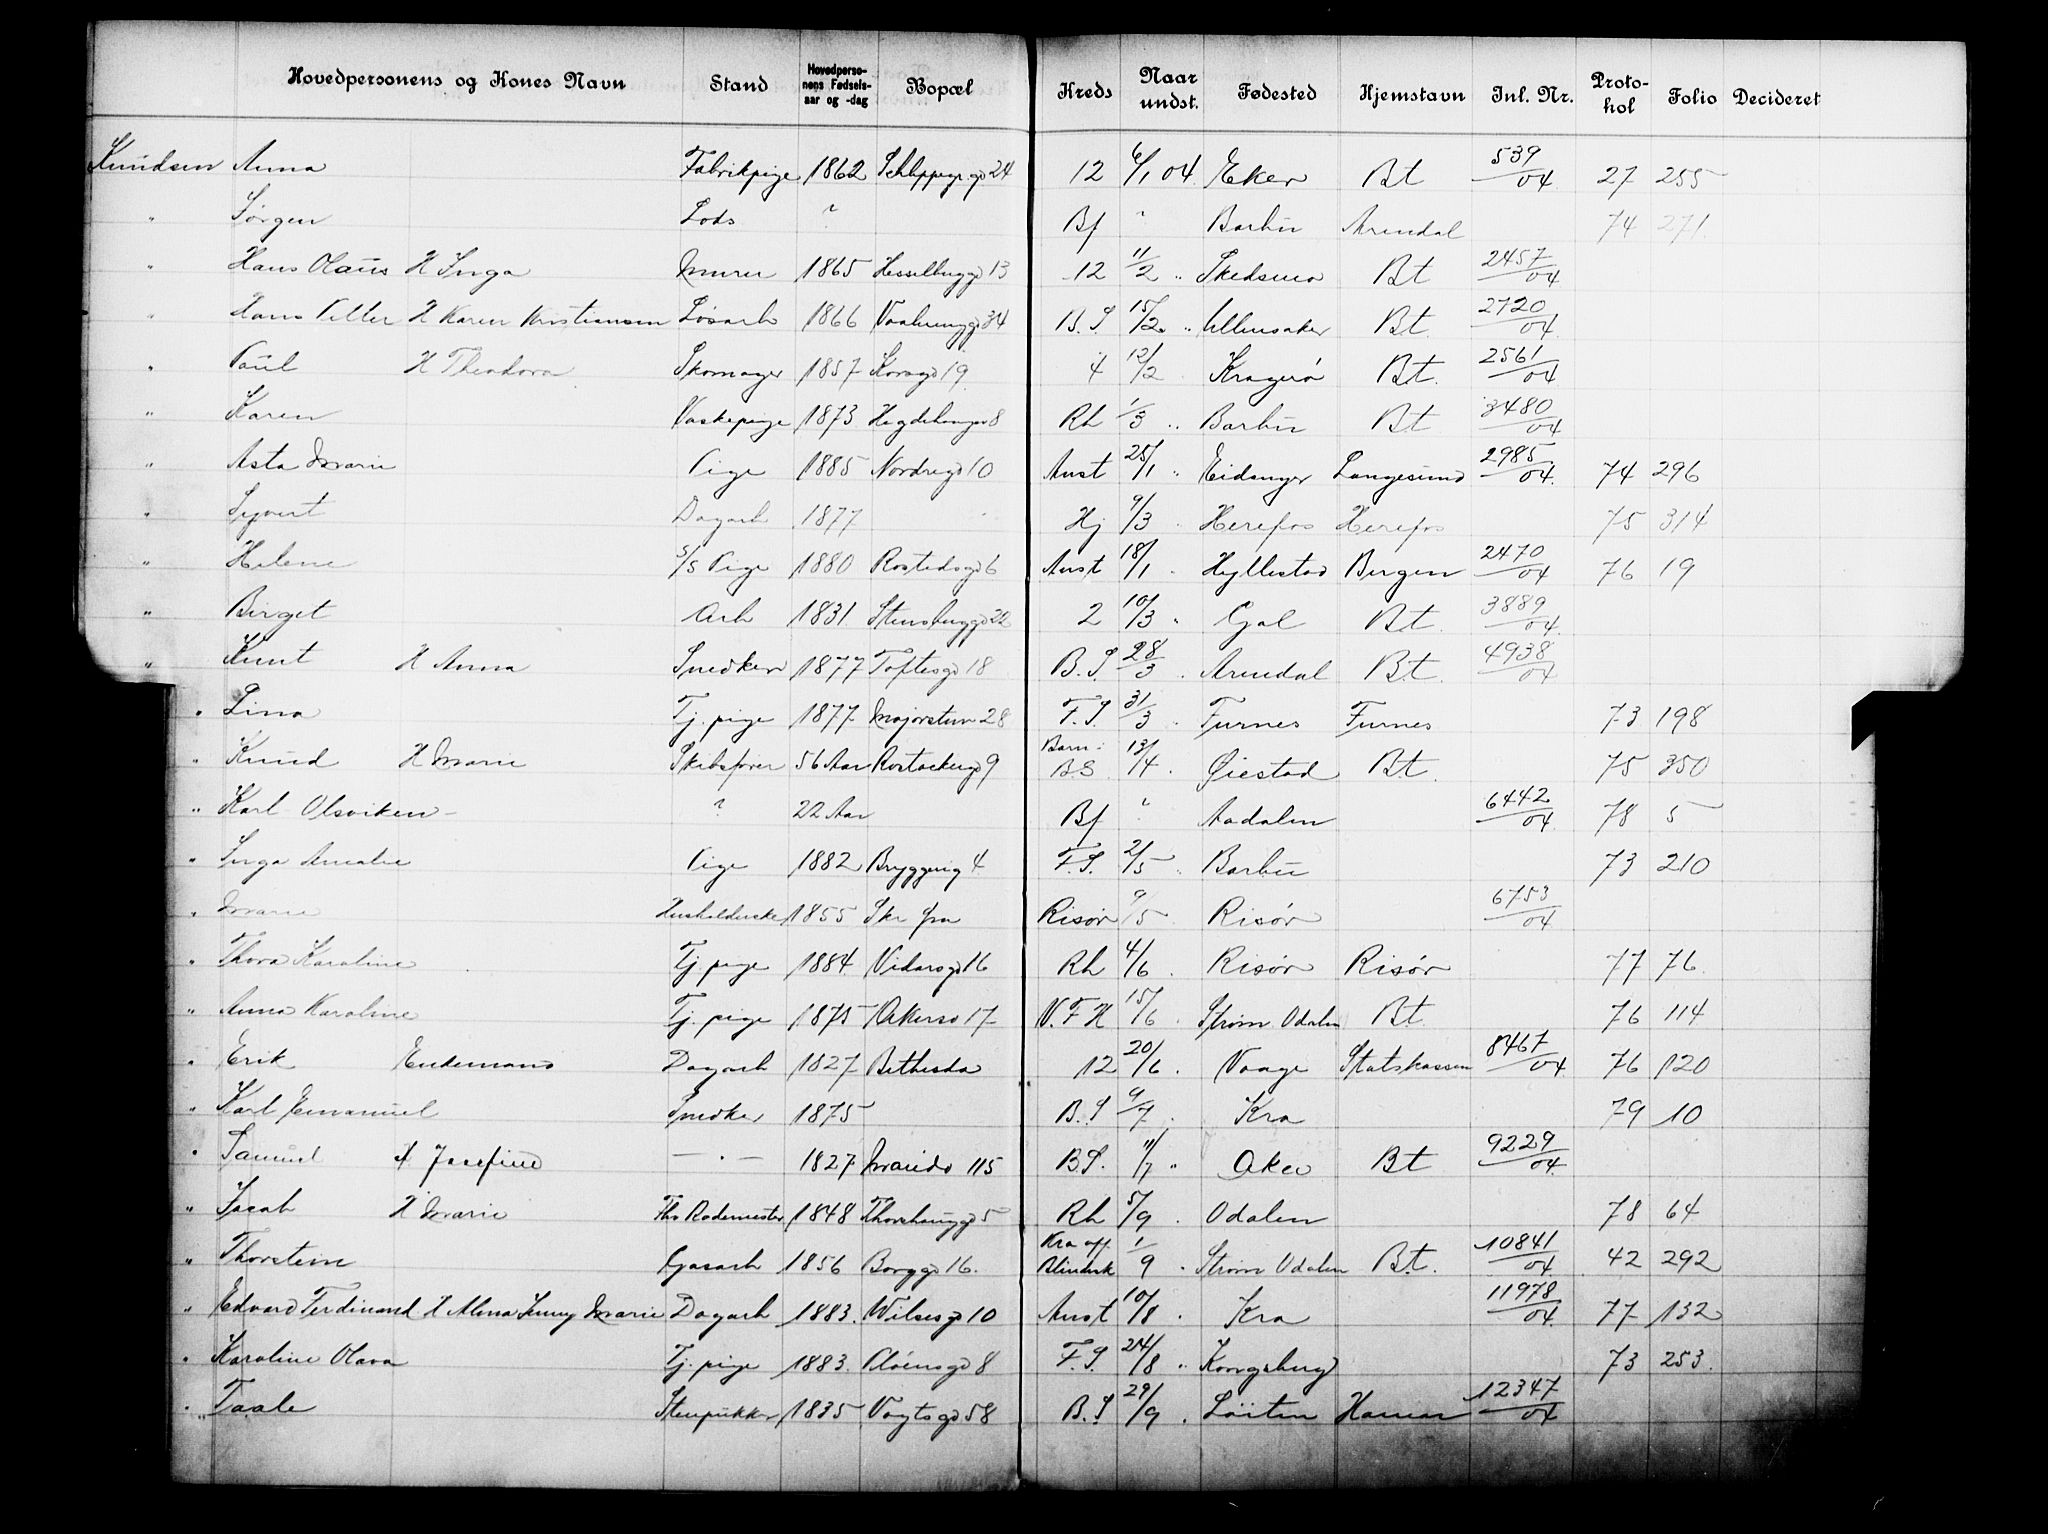 Hovedpersonens og Kones Navn Stand Hovedperso-nens Fødsels-aar og -dag Bopæl Kreds Naar undst. Fødested Hjemstavn Inl. Nr. Proto-kol Folio Decideret
Knudsen Anna Fabrikpige 1862 Schleppegr.gd 24 12 6/1 04 Eker Bt 539/04 27 255
" Jørgen Lods ? Bf ? Barbu Arendal 74 271
" Hans Olaus H Inga Murer 1865 Hesselbnggd 13 12 11/2 " Skedsmo Bt 2457/04
" Hans Petter H Karen Kristiansen Løsarb 1866 Vaalernggd 34 B.S 15/2 " Ullensaker Bt 2720/04
" Paul H Theodora Skomager 1857 Korsgd 19 4 12/2 Kragerø Bt 2561/04
" Karen Vaskepige 1873 Hegdehaugsv 8 Rh 1/3 " Barbu Bt 3480/04
" Asta Marie Pige 1885 Nordregd 10 Aust 25/1 " Eidanger Langesund 2985/04 74 296
" Syvert Dagarb 1877 Hj 9/3 " Herefos Herefos 75 314
" Helene s/s Pige 1880 Rostedsgd 6 Aust 18/1 Hyllestad Bergen 2470/04 76 19
" Birget Arb 1831 Stensberggd 22 2 10/3 " Gol Bt 3889/04
" Knut H Anna Snedker 1877 Toftesgd 18 B.S. 28/3 " Arendal Bt 4938/04
" Lina Tj. pige 1877 Majorstuen 28 F.S 31/3 " Furnes Furnes 73 198
" Knud H Marie Skibsfører 56 Aar Rostockergd 9 Barn: B.S. 13/4 " Øiestad Bt 75 350
" Karl Olsviken - ? 22 Aar Bf ? Aadalen 6442/04 78 5
" Inga Amalie Pige 1882 Bryggerig 4 F.S. 2/5 " Barbu 73 210
" Marie Husholderske 1855 Skr fra Risør 9/5 Risør 6753/04
" Thora Karoline Tj. pige 1884 Vidarsgd 16 Rh 4/6 " Risør Risør 77 76
" Anna Karoline Tj. pige 1875 Akersv 17 V.F.H 15/6 " Strøm Odalen Bt 76 114
" Erik Enkemand Dagarb 1827 Bethesda 12 20/6 " Vaage Statskassen 8467/04 76 120
" Karl Emanuel Snedker 1875 B.S 9/7 " Kra 79 10
" Samuel H Josefine — " — 1827 Maridv 115 B.S. 11/7 " Aker Bt 9229/04
" Jacob H Marie Fhv Rodemester 1848 Thorshauggd 5 Rh 5/9 " Odalen 78 64
" Thorstein Gasarb 1856 Borggd 16. Kra off. Klinik 1/9 " Strøm Odalen Bt. 10841/04 42 292
" Edvard Ferdinand H Alma Jenny Marie Dagarb 1883. Wilsesgd 10 Aust 10/8 " Kra 11978/04 77 132
" Karoline Olava Tj. pige 1883. Aløensgd 8 F.S. 24/8 " Kongsberg 73 253.
" Taale Stenpukker 1835 Vogtsgd 58 B.S 29/9 " Løiten Hamar 12347/04